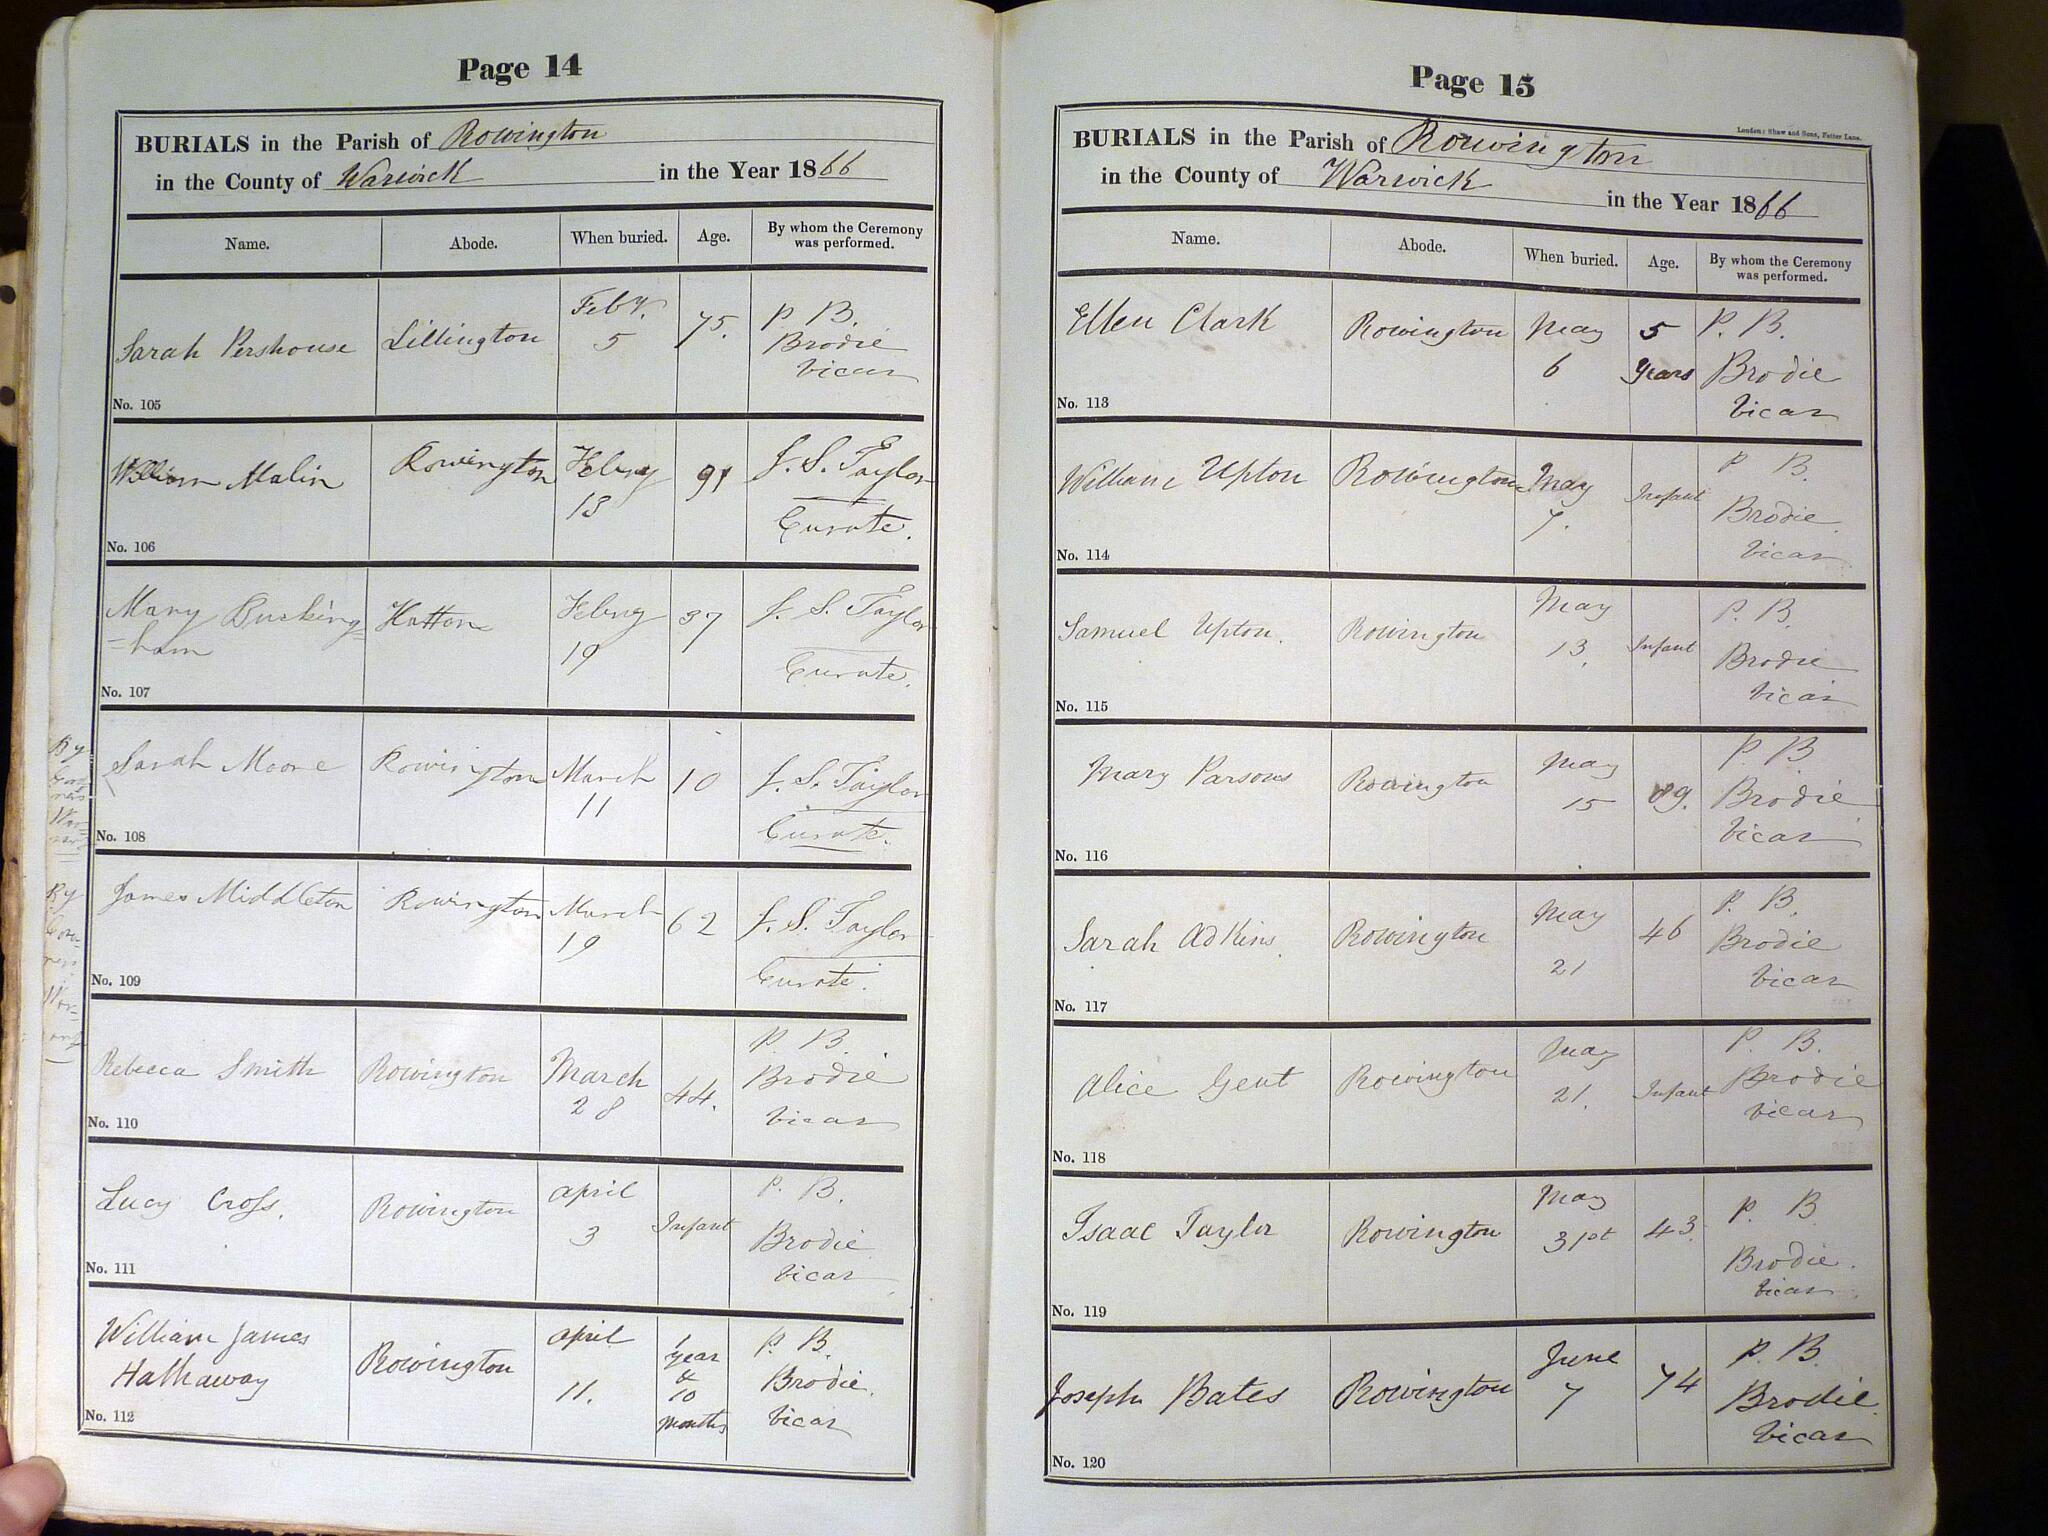 Page 14
BURIALS in the Parish of Rowington
in the County of Warwick in the Year 1866
Name. Abode. When buried. Age. By whom the Ceremony
was performed.
Sarah Pershouse Lillington Feby. 5 75. P B. Brodie Vicar
No. 105
William Malin Rowington Febry 13 91 J. S. Taylor Curate.
No. 106
Mary Bucking= Hatton Febry 19 37 J. S. Taylor Curate.
=ham
No. 107
By
Sarah Moore Rowington March 11 10 J. S. Taylor Curate.
No. 108
By
James Middleton Rowington March 19 62 J. S. Taylor Curate.
No. 109
Rebecca Smith Rowington March 28 44. P. B. Brodie Vicar
No. 110
Lucy Cross. Rowington April 3 Infant P. B. Brodie Vicar
No. 111
William James Rowington April 11. 1 year & 10 months P. B. Brodie. Vicar
Hathaway
No. 112
Page 15
London: Shaw and Sons, Fetter Lane.
BURIALS in the Parish of Rowington
in the County of Warwick in the Year 1866
Name. Abode. When buried. Age. By whom the Ceremony
was performed.
Ellen Clark Rowington May 6 5 years P. B. Brodie Vicar
No. 113
William Upton Rowington May 7. Infant P B. Brodie Vicar
No. 114
Samuel Upton. Rowington May 13. Infant P. B. Brodie Vicar
No. 115
Mary Parsons Rowington May 15 P B Brodie Vicar
No. 116
Sarah Adkins Rowington May 21 46 P. B. Brodie Vicar
No. 117
Alice Gent Rowington May 21. Infant P. B. Brodie Vicar
No. 118
Isaac Taylor Rowington May 31st 43. P. B Brodie. Vicar
No. 119
Joseph Bates Rowington June 7 74 P. B. Brodie. Vicar
No. 120